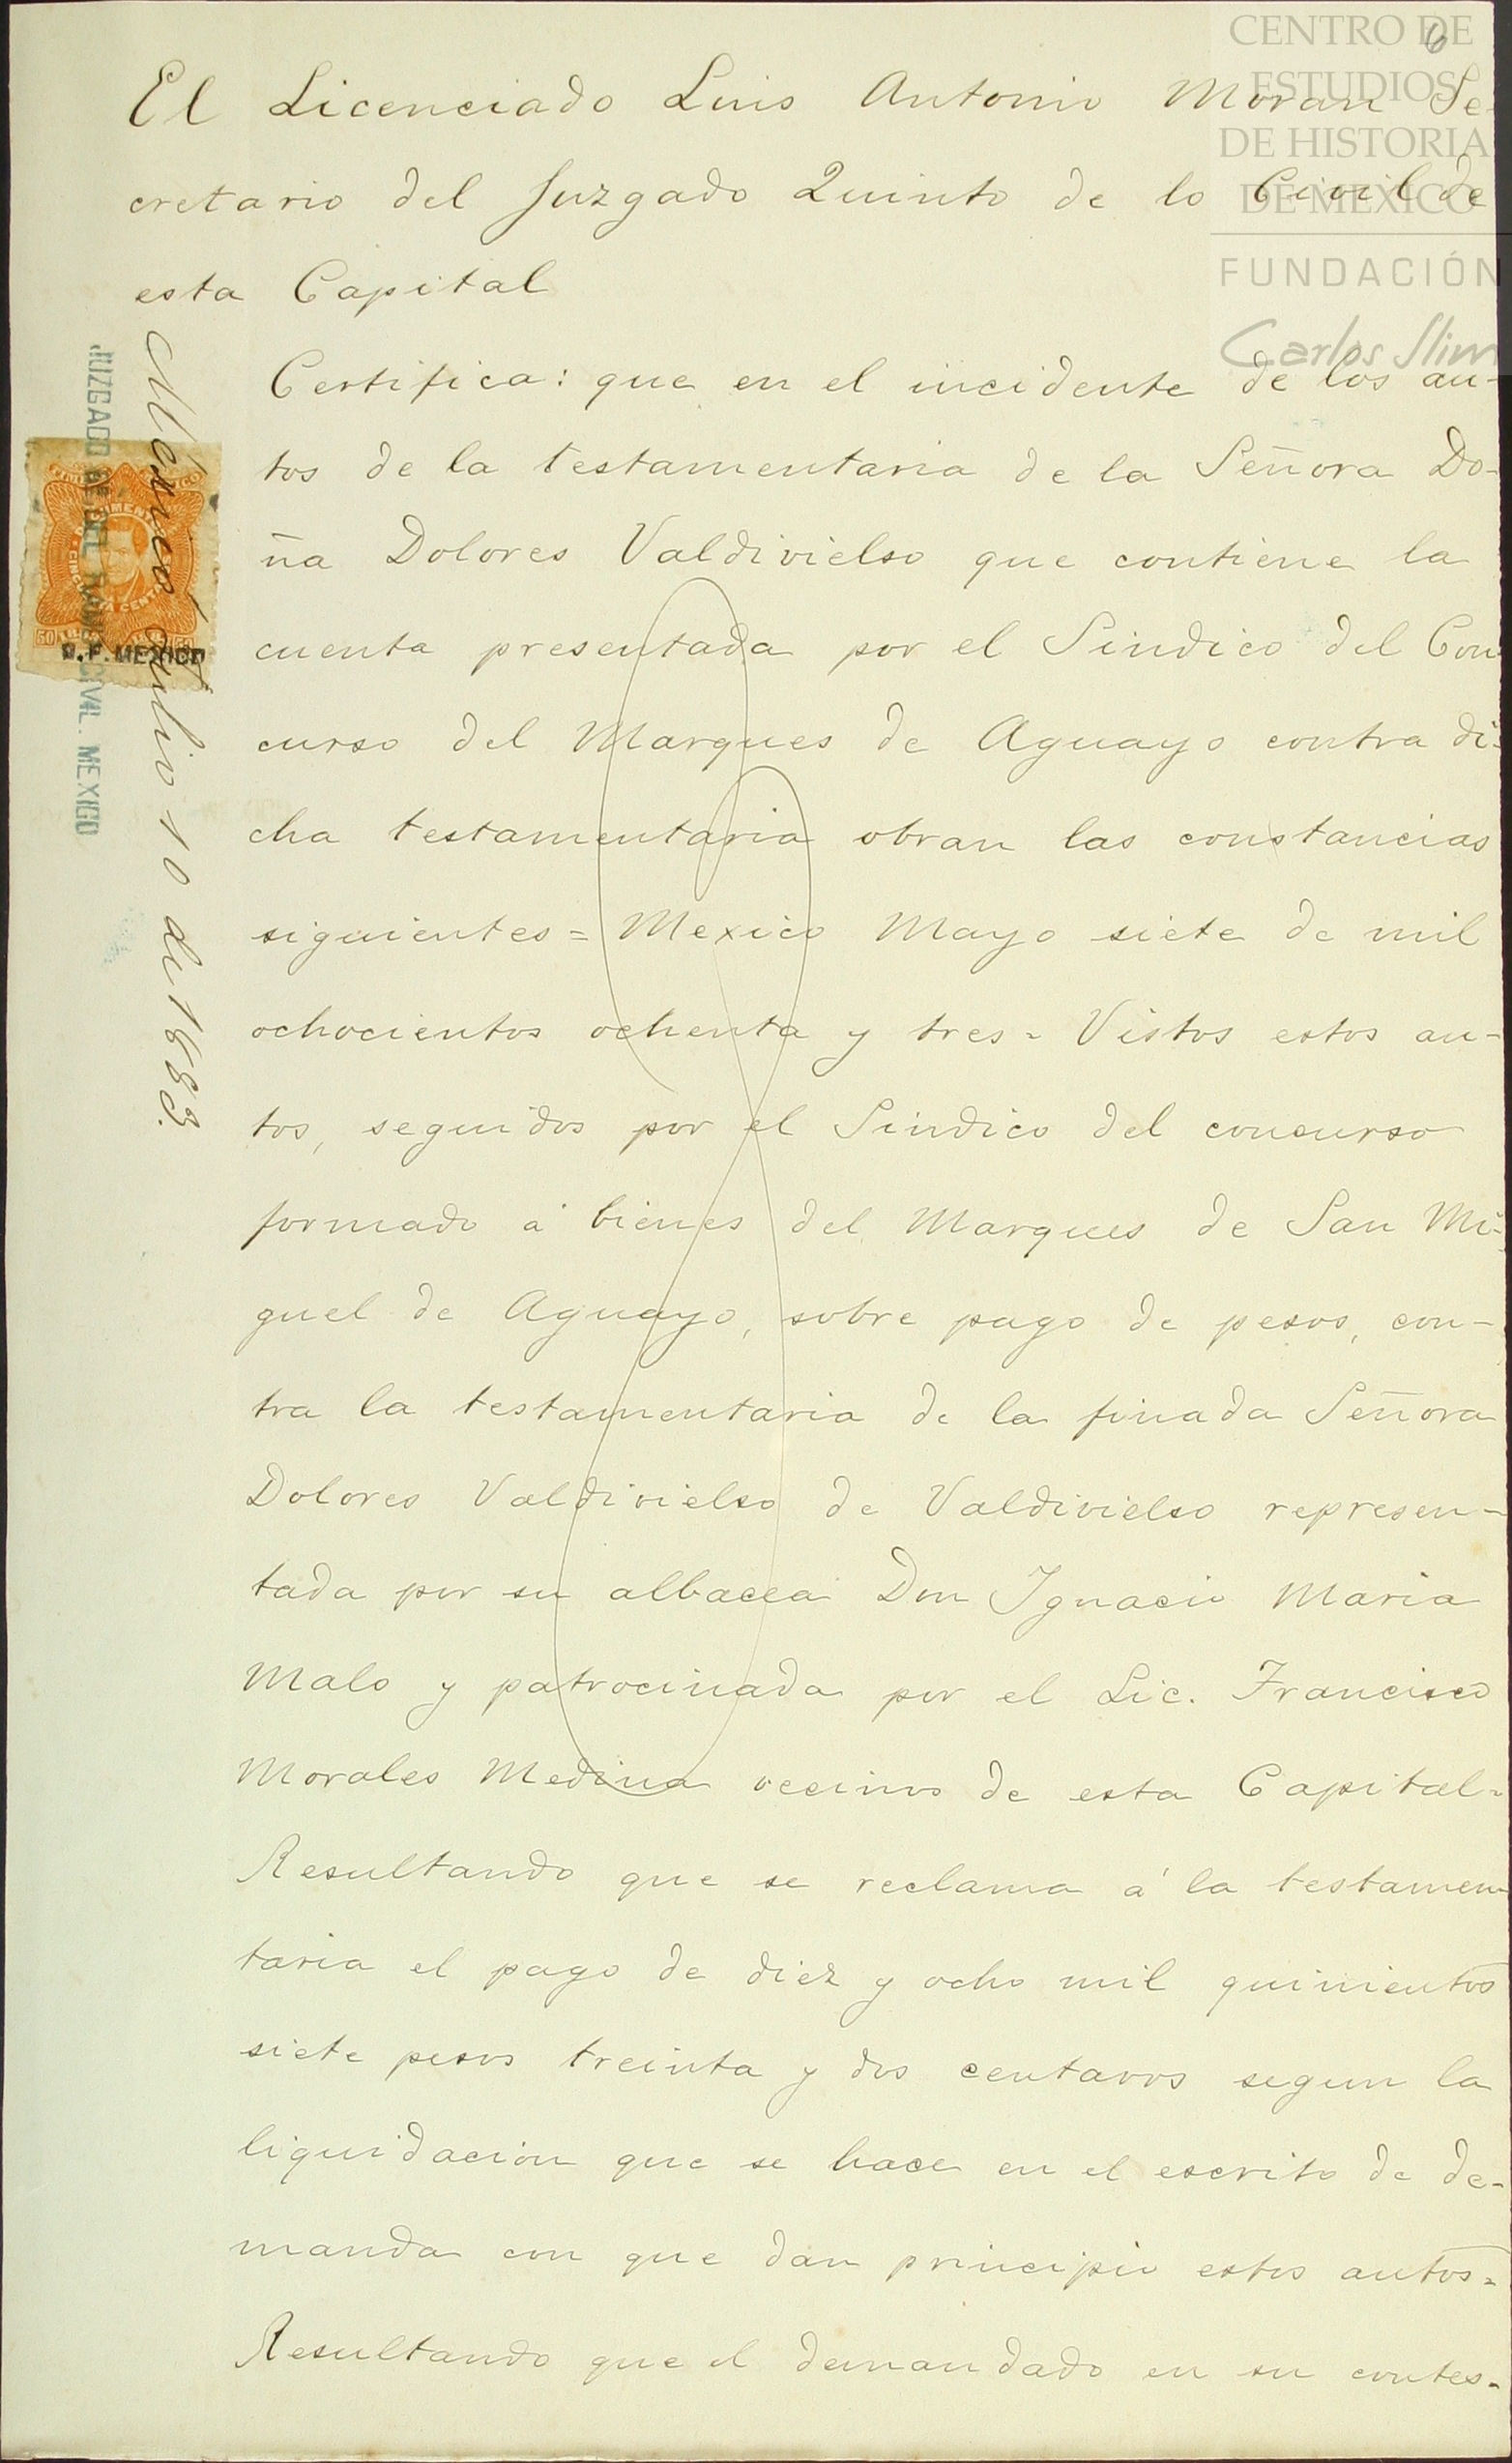 6
CENTRO DE
ESTUDIOS
DE HISTORIA
DE MEXICO
FUNDACIÓN
Carlos Slim
El Licenciado Luis Antonio Moran Se-
cretario del Juzgado Quinto de lo Civil de
esta Capital
Certifica: que en el incidente de los au-
tos de la testamentaria de la Señora Do-
ña Dolores Valdivielso que contiene la
cuenta presentada por el Sindico del Con
curso del Marques de Aguayo contra di-
cha testamentaria obran las constancias
siguientes = Mexico Mayo siete de mil
ochocientos ochenta y tres = Vistos estos au-
tos, seguidos por el Sindico del concurso
formado á bienes del Marques de San Mi-
guel de Aguayo, sobre pago de pesos, con-
tra la testamentaria de la finada Señora
Dolores Valdivielso de Valdivielso represen-
tada por su albacea Don Ignacio Maria
Malo y patrocinada por el Lic. Francisco
Morales Medina vecinos de esta Capital=
Resultando que se reclama á la testamen
taria el pago de diez y ocho mil quinientos
siete pesos treinta y dos centavos segun la
liquidación que se hace en el escrito de de-
manda con que dan principio estos autos=
Resultando que el demandado en su contes-
México Julio 10 de 1883.
JUZGADO 5º DEL RAMO CIVIL. MEXICO
D.F. MEXICO
50
50